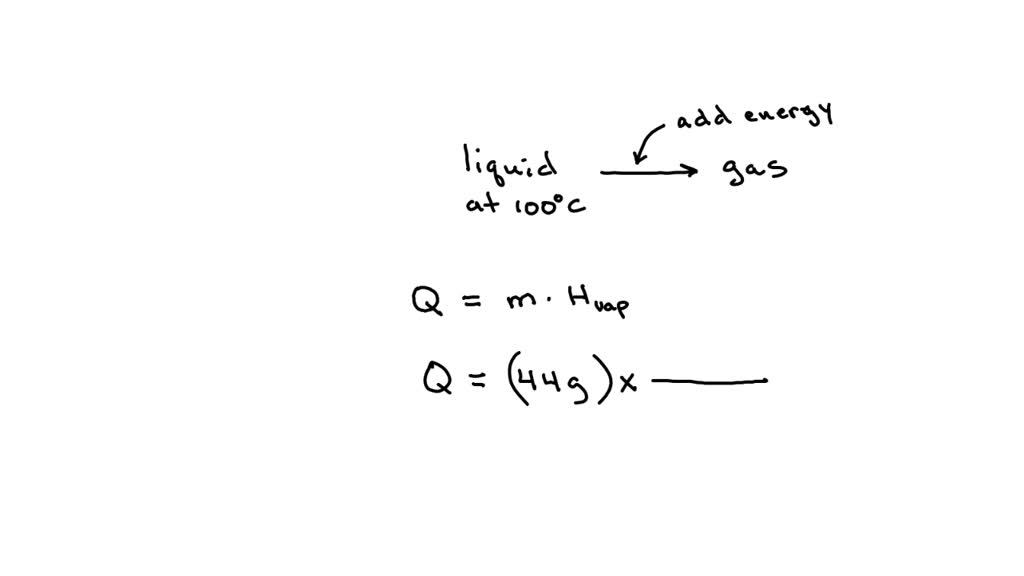 add energy
liquid → gas
at 100°C
Q = m · Hvap
Q = (44g) x ______